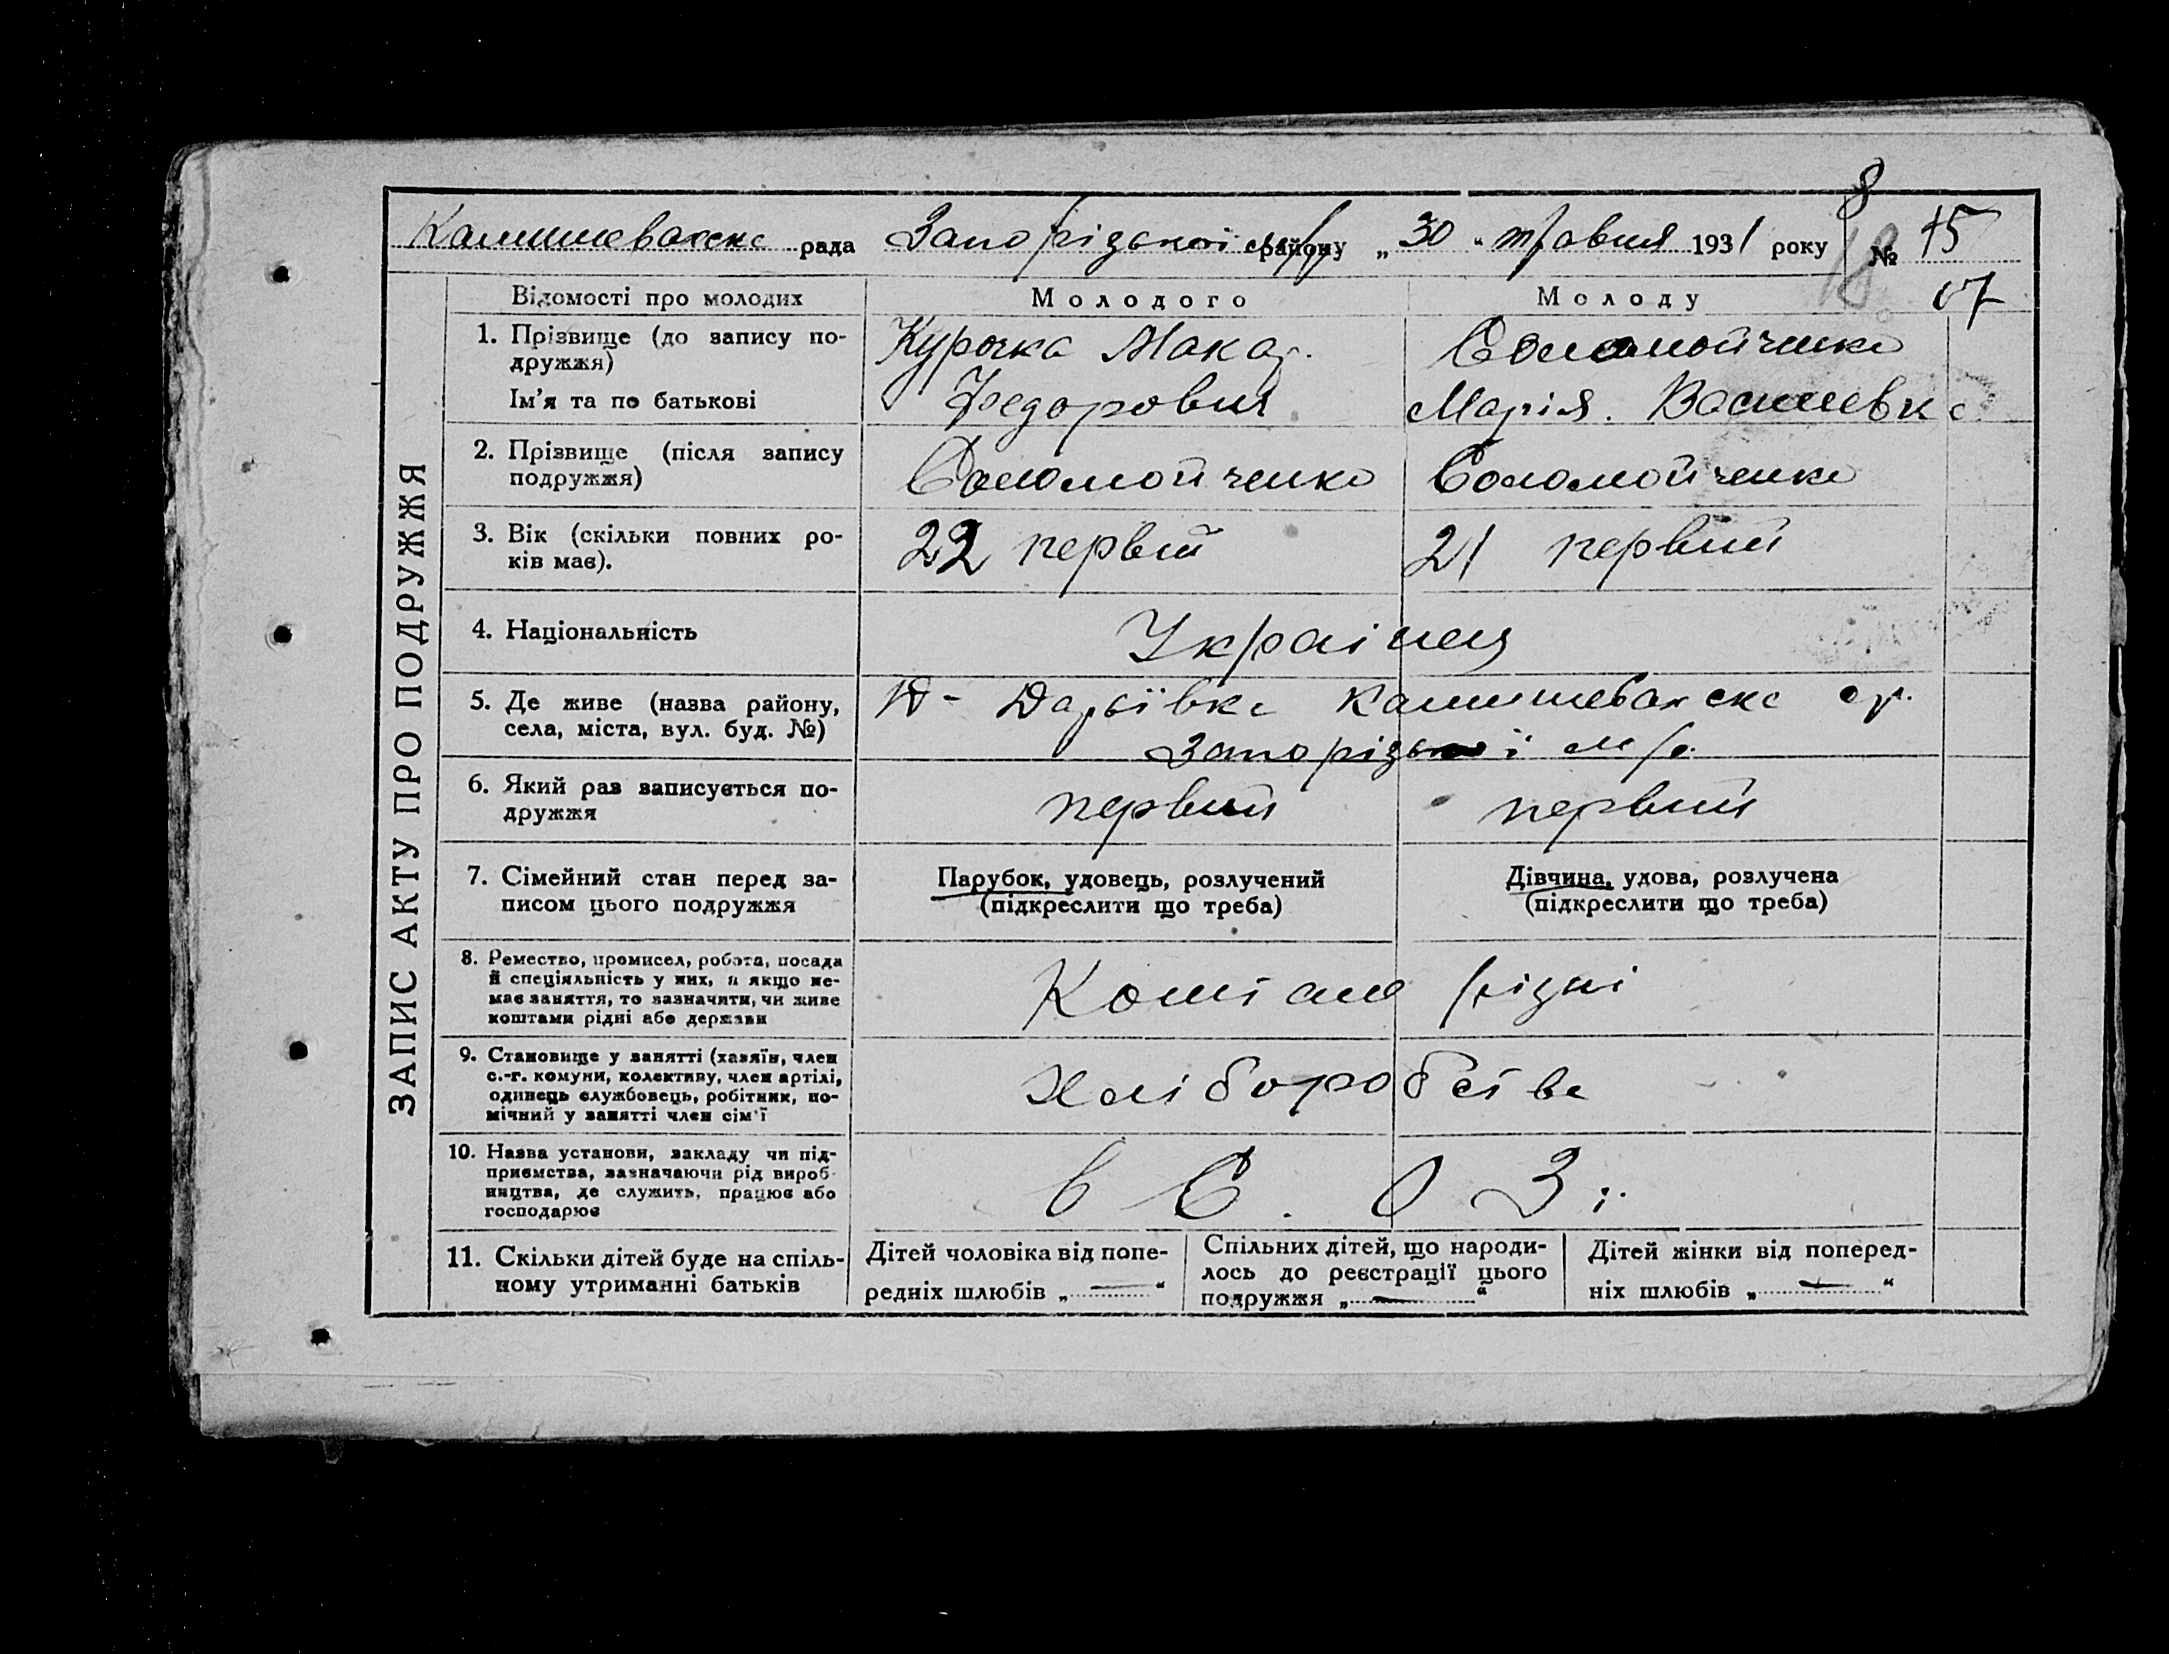 8
Камишеваска рада Запорізької м/р району „30“ травня 1931 року № 15
18
07
ЗАПИС АКТУ ПРО ПОДРУЖЖЯ
Відомості про молодих Молодого Молоду
1. Прізвище (до запису по-
дружжя)
Ім'я та по батькові
Курочка Макар.
Федорович
Соломойченко
Марія. Василевна
2. Прізвище (після запису
подружжя)
Соломойченко Соломойченко
3. Вік (скільки повних ро-
ків має).
22 первий 21 первий
4. Національність
Українця
5. Де живе (назва району,
села, міста, вул. буд. №)
Д- Дарьївка Камишеваска ср.
Запорізької м/р.
6. Який раз записується по-
дружжя
первий первий
7. Сімейний стан перед за-
писом цього подружжя
Парубок, удовець, розлучений
(підкреслити що треба)
Дівчина, удова, розлучена
(підкреслити що треба)
8. Ремество, промисел, робота, посада
й спеціяльність у них, а якщо не-
має заняття, то зазначити, чи живе
коштами рідні або держави
Коштами рідні
9. Становище у занятті (хазяїн, член
с.-г. комуни, колективу, член артілі,
одинець службовець, робітник, по-
мічний у занятті член сім'ї
Хліборобства
10. Назва установи, закладу чи під-
приємства, зазначаючи рід вироб-
ництва, де служить, працює або
господарює
в С. О З і.
11. Скільки дітей буде на спіль-
ному утриманні батьків
Дітей чоловіка від попе-
редніх шлюбів „—“
Спільних дітей, що народи-
лось до реєстрації цього
подружжя „—“
Дітей жінки від поперед-
ніх шлюбів „—“